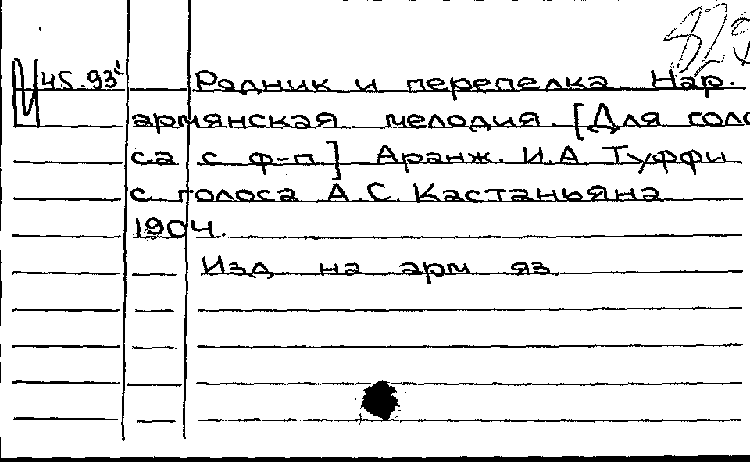 829
И 45.93¹ Родник и перепелка. Нар.
армянская мелодия. [Для голо
са с ф-п] Аранж. И.А Туффи
с голоса А.С. Кастаньяна
1904.
Изд на арм яз